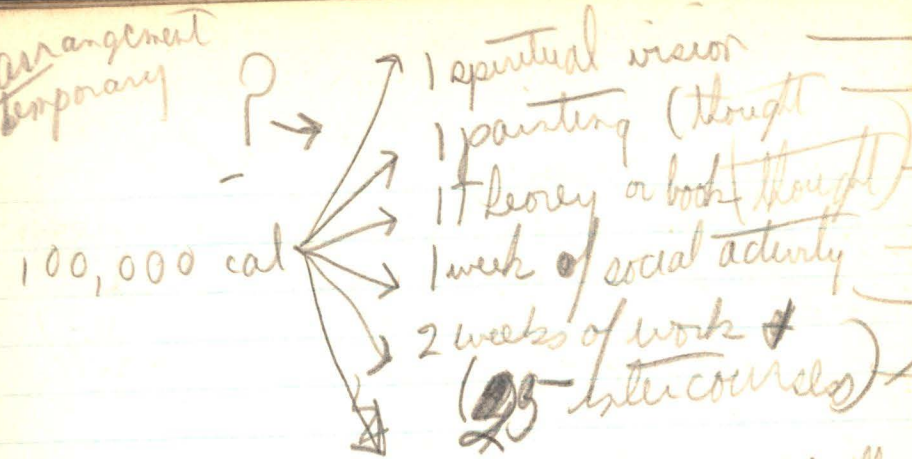 arrangement
temporary
?
1 spiritual vision
1 painting (thought
1 Theorey or book (thought)
100,000 cal
1 week of social activity
2 weeks of work
(25 intercourses)